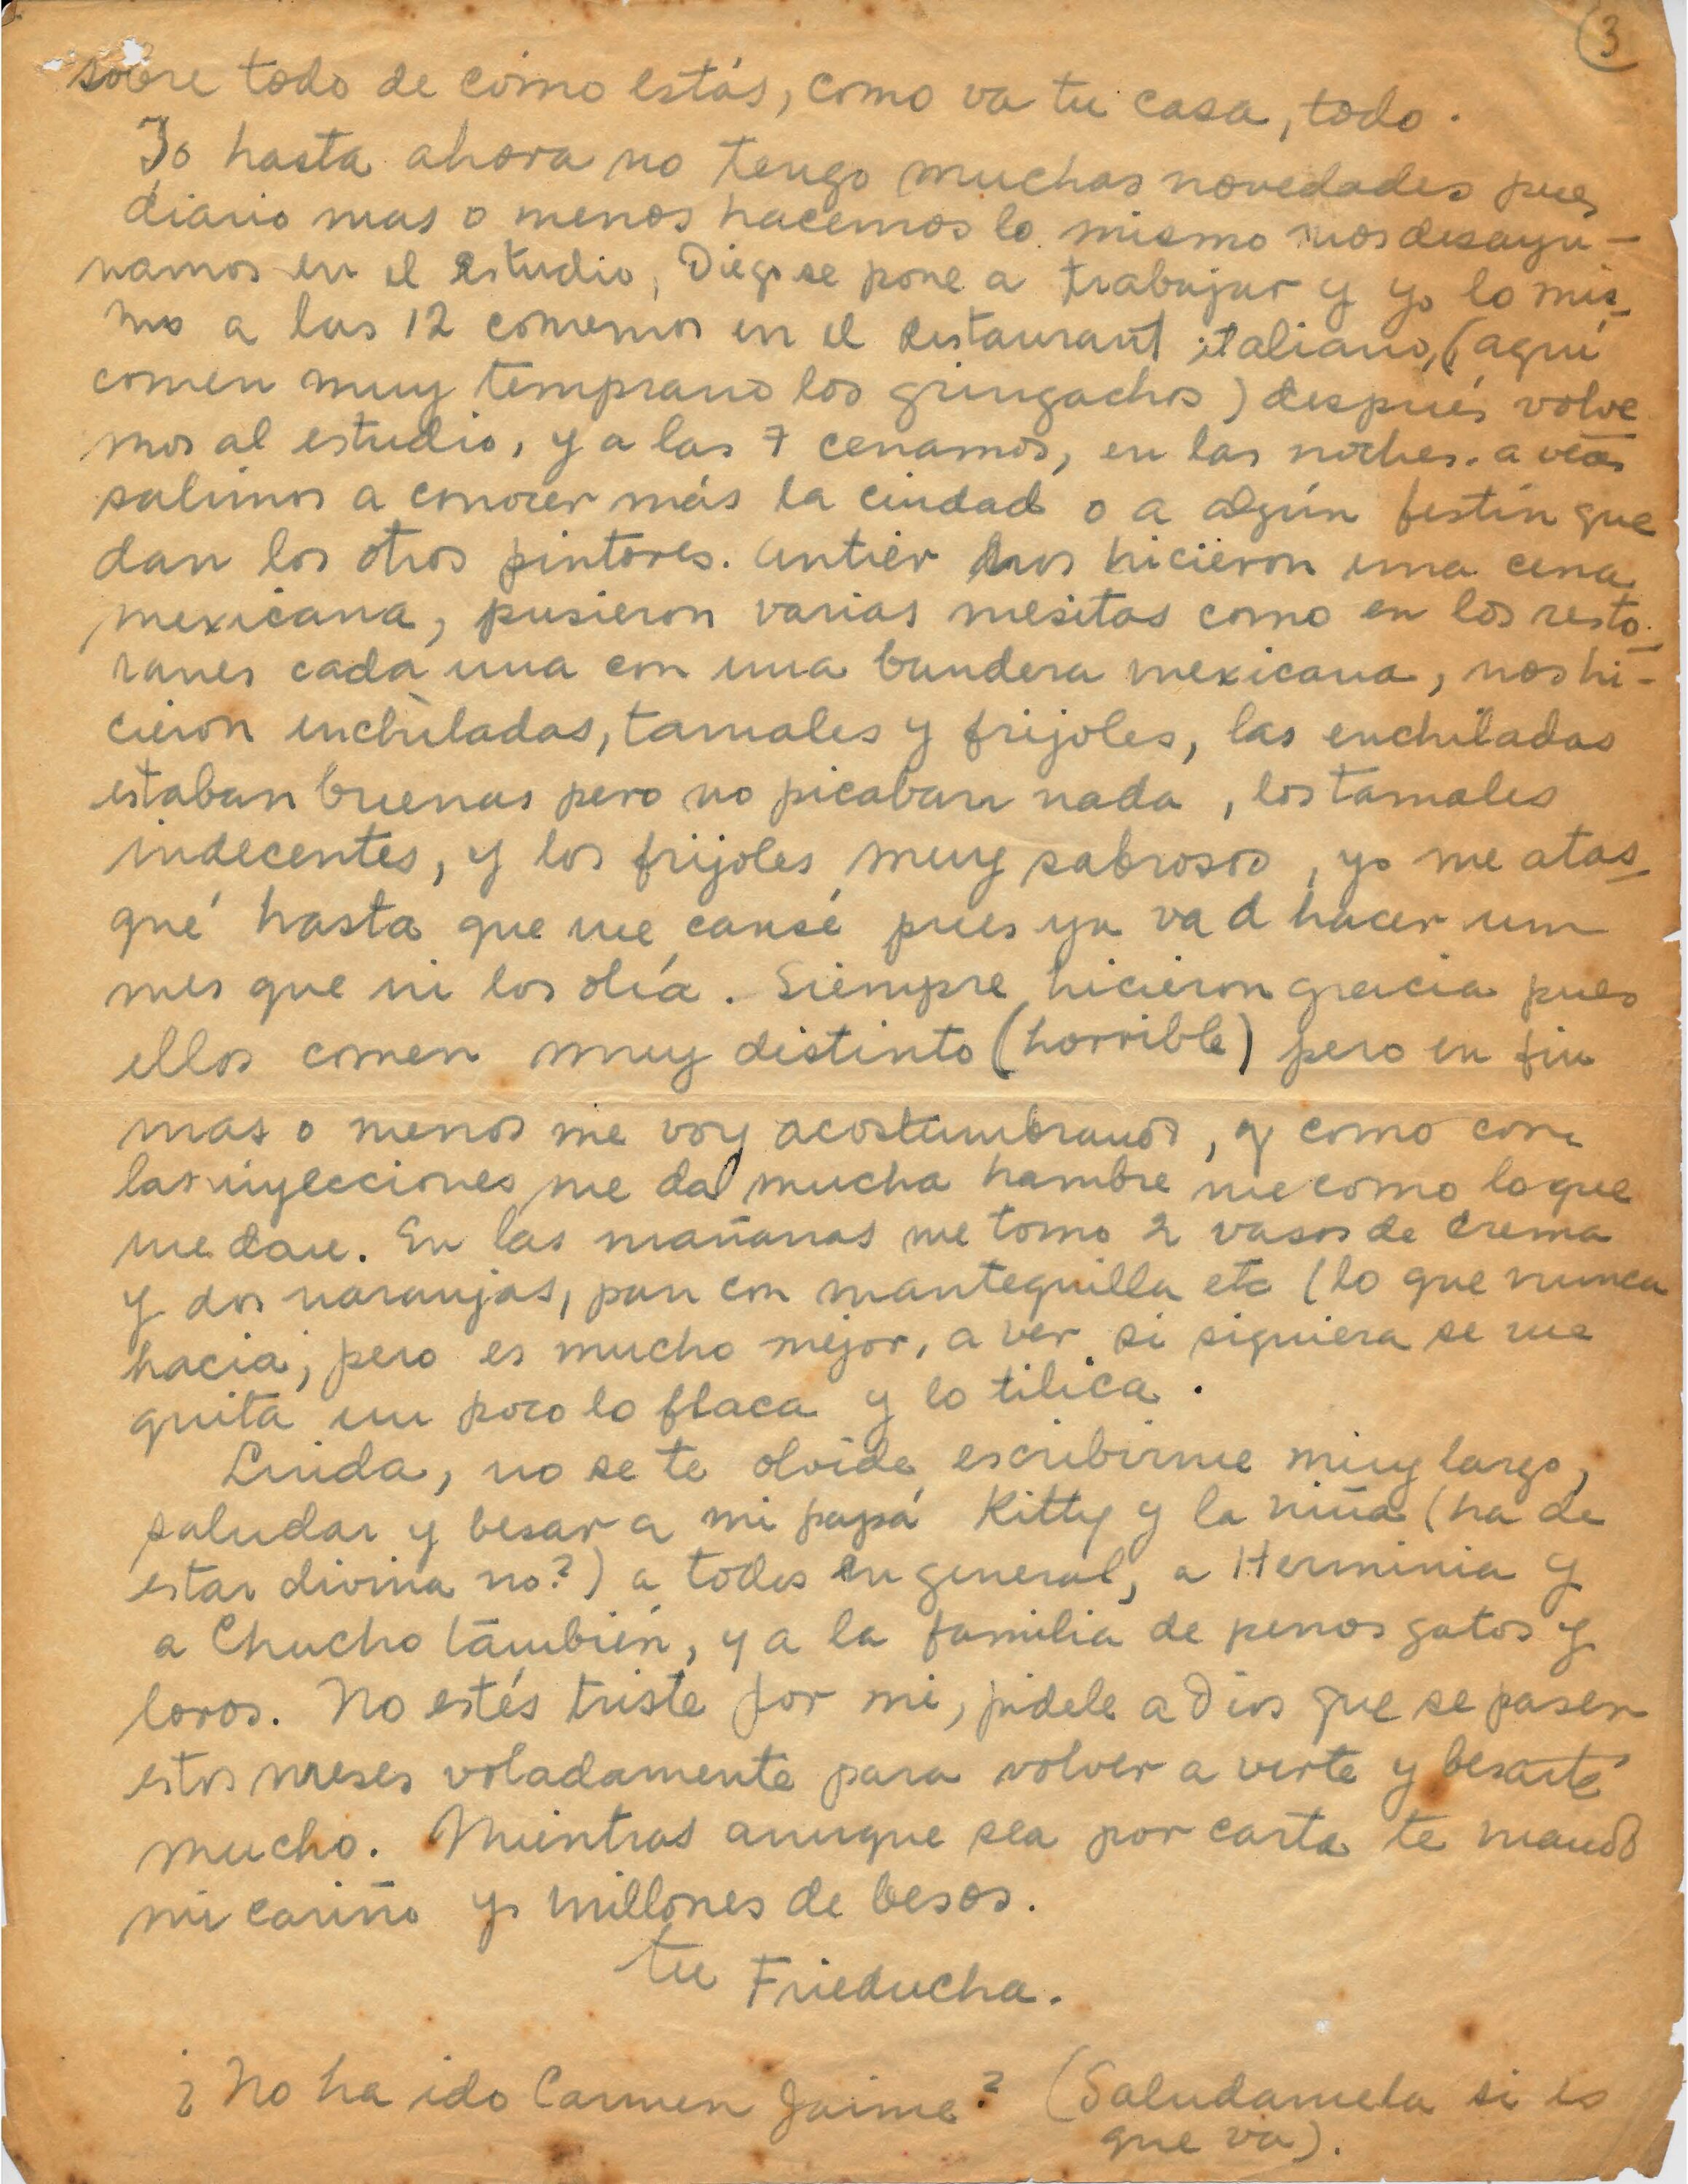 3
sobre todo de cómo estás, como va tu casa, todo.
Yo hasta ahora no tengo muchas novedades pues
diario mas o menos hacemos lo mismo nos desayu-
namos en el estudio, Diego se pone a trabajar y yo lo mis-
mo a las 12 comemos en el restaurant italiano, (aquí
comen muy temprano los gringachos) después volve
mos al estudio, y a las 7 cenamos, en las noches. a veces
salimos a conocer más la ciudad o a algún festín que
dan los otros pintores. Antier nos hicieron una cena
mexicana, pusieron varias mesitas como en los resto-
ranes cada una con una bandera mexicana, nos hi-
cieron enchiladas, tamales y frijoles, las enchiladas
estaban buenas pero no picaban nada, los tamales
indecentes, y los frijoles muy sabrosos, yo me atas-
qué hasta que me cansé pues ya va a hacer un
mes que ni los olía. Siempre hicieron gracia pues
ellos comen muy distinto (horrible) pero en fin
mas o menos me voy acostumbrando, y como con
las inyecciones me da mucha hambre me como lo que
me dan. En las mañanas me tomo 2 vasos de crema
y dos naranjas, pan con mantequilla etc (lo que nunca
hacia, pero es mucho mejor, a ver si siquiera se me
quita un poco lo flaca y lo tilica.
Linda, no se te olvide escribirme muy largo,
saludar y besar a mi papá Kitty y la niña (ha de
estar divina no?) a todos en general, a Herminia y
a Chucho también, y a la familia de perros gatos y
loros. No estés triste por mi, pidele a Dios que se pasen
estos meses voladamente para volver a verte y besarte
mucho. Mientras aunque sea por carta te mando
mi cariño y millones de besos.
tu Frieducha.
¿No ha ido Carmen Jaime? (Saludamela si es
que va).